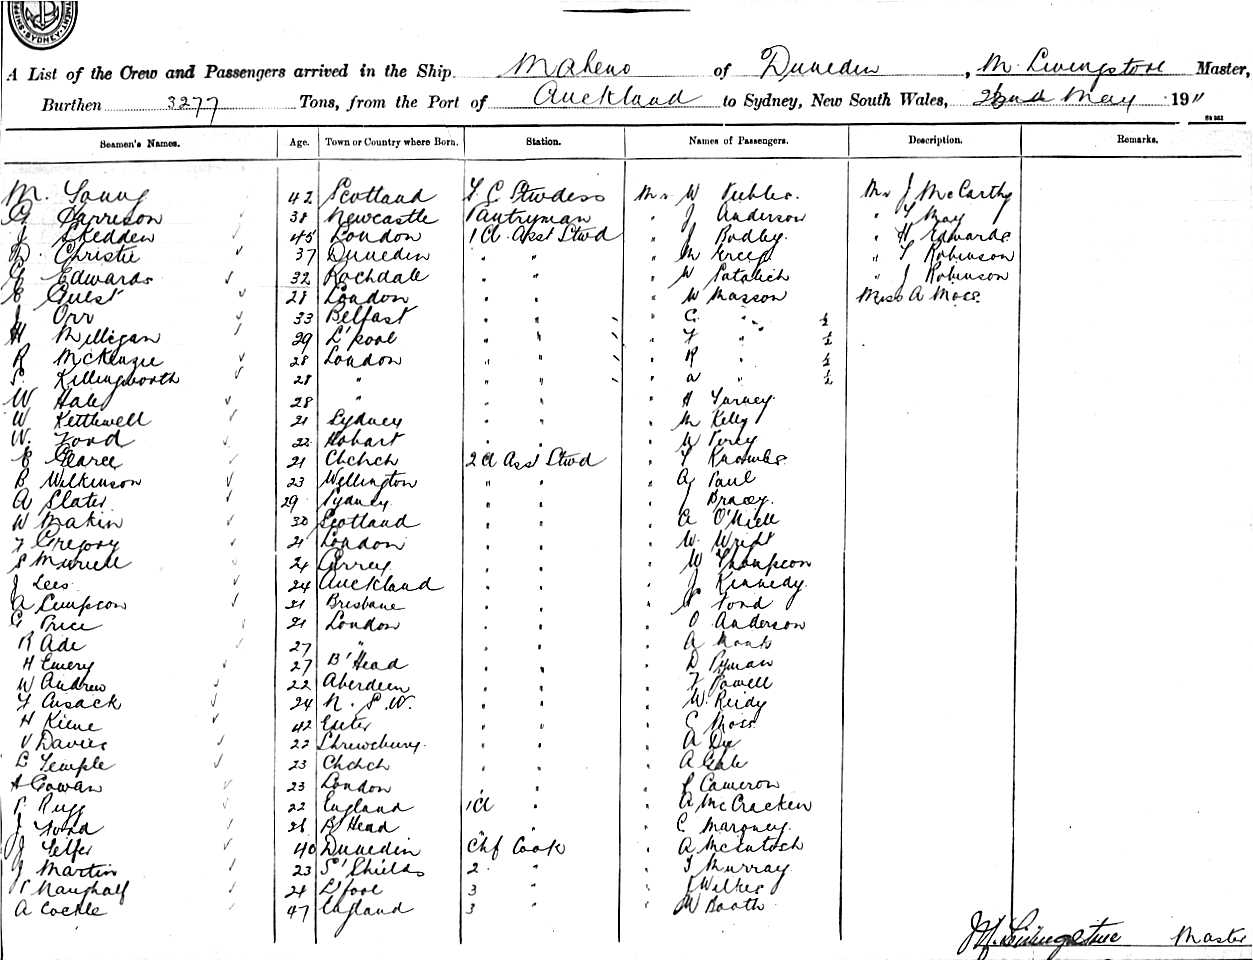 SYDNEY
A List of the Crew and Passengers arrived in the Ship Maheno of Dunedin, M. Livingstone Master,
Burthen 3277 Tons, from the Port of Auckland to Sydney, New South Wales, 22nd May 1911
Seamen's Names. Age. Town or Country where Born. Station. Names of Passengers. Description. Remarks.
M. Young 42 Scotland Stwdess Mr W Mr J McCarthy
G Harrison 38 Newcastle Pantryman " J Anderson " May
J Skedden 45 London 1 Cl Asst Stwd " J Bodley " H Edwards
D. Christie 37 Dunedin " " " M " T Robinson
G Edwards 32 Rochdale " " " W " J Robinson
E Guest 28 London " " " W Masson Miss A Moss
J Orr 33 Belfast " " " C. " ½
H Milligan 29 L'pool " " " F " ½
R McKenzie 28 London " " " R " ½
S. Killingworth 28 " " " " A " ½
W Hales 28 " " " " H
W Kettlewell 21 Sydney " " " M Kelly
W. Ford 22 Hobart " " " W Percy
E Pearce 21 Chchch 2 Cl Asst Stwd " T
B Wilkinson 23 Wellington " " " G Paul
A Slater 29 Sydney " " " J Bracey
W Makin 30 Scotland " " " O'Niell
F Gregory 21 London " " " W. Wright
S 24 " " " W Thompson
J Lees 24 Auckland " " " J Kennedy
A Simpson 21 Brisbane " " " Ford
G Price 21 London " " " O Anderson
R Ade 27 " " " " A Monk
H Emery 27 B'Head " " " D Pyman
W Andrew 22 Aberdeen " " " F Powell
F Cusack 24 N. S. W. " " " W. Reidy
H 42 Exeter " " " C Moss
V Davies 22 Shrewsbury " " " A Dye
L Temple 23 Chchch " " " A Gale
A Gowan 23 London " " " J Cameron
P. Rugg 22 England 1 Cl " " A McCracken
J Ford 26 B'Head " " " C Maroney
J Telfer 40 Dunedin Chf Cook " A McIntosh
J Martin 23 S'Shields 2 " " T Murray
P Naughalf 24 L'pool 3 " " J Wilkes
A Cockle 47 England 3 " " W Booth
M. Livingstone Master